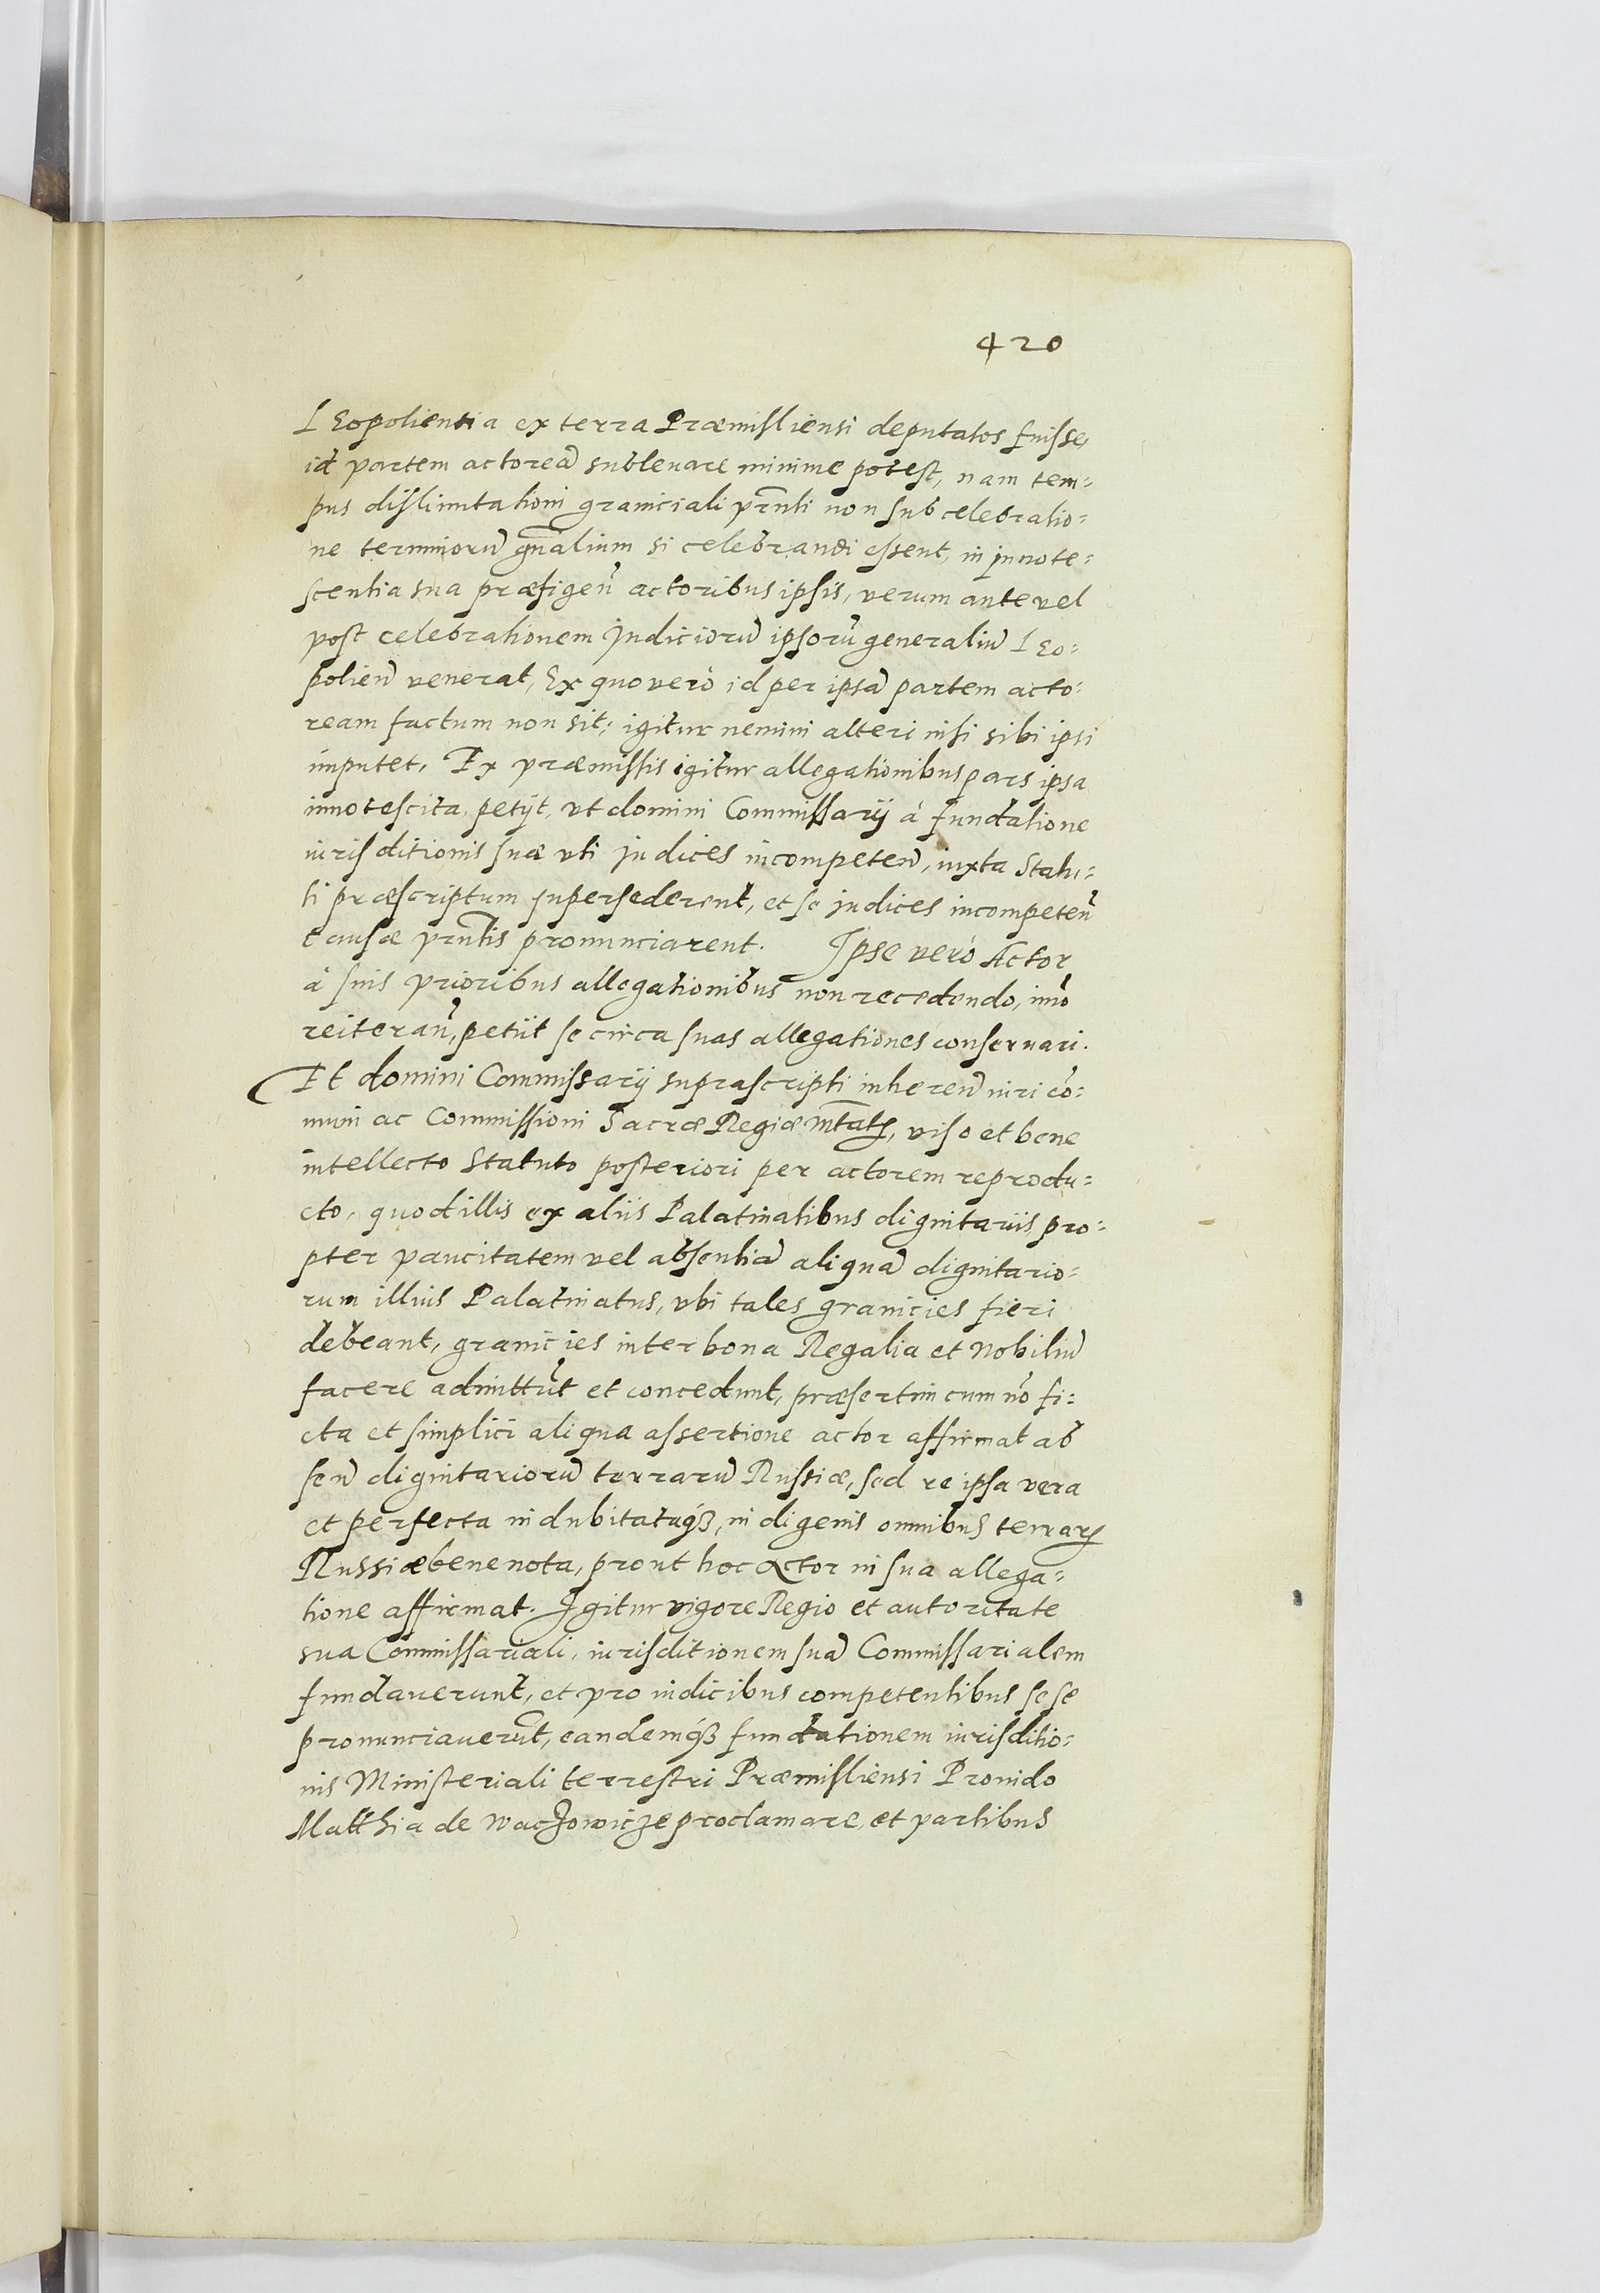 420
LEopolientia ex terra Præmisliensi deputatos fuisse,
id partem actoreã subleuare minime potest, nam tem=
pus dislimitationi graniciali prñti non sub celebratio=
ne terminorũ gñalium si celebrandi essent, in innote=
scentia sua præfigeñ actoribus ipsis, verum ante vel
post celebrationem Judiciorũ ipsorũ generaliũ LEo=
polieñ venerat, Ex quo verò id per ipsã partem acto=
ream factum non sit, igitur nemini alteri nisi sibi ipsi
imputet. Ex præmissis igitur allegationibus pars ipsa
innotescita petijt, vt domini Commissarij à fundatione
iurisditionis suæ vti Judices incompeteñ, iuxta Statu=
ti præscriptum supersederent, et se judices incompeteñ
causæ prñtis pronunciarent. Ipse verò Actor
à suis prioribus allegationibus non recedendo, imò
reiterañ, petiit se circa suas allegationes conseruari.
Et domini Commissarij suprascripti inhereñ iuri cõ=
muni ac Commissioni Sacræ Regiæ Mtatis, viso et bene
intellecto Statuto posteriori per actorem reprodu=
cto, quod illis ex aliis Palatinatibus dignitariis pro=
pter paucitatem vel absentiã aliquã dignitario=
rum illius Palatinatus, vbi tales granicies fieri
debeant, granicies inter bona Regalia et Nobiliũ
facere admittũt et concedunt, præsertim cum nõ fi=
cta et simplici aliqua assertione actor affirmat ab
señ dignitariorũ terrarũ Russiæ, sed re ipsa vera
et perfecta indubitataq́ꝫ, indigenis omnibus terrarꝫ
Russiæ bene nota, prout hoc Actor in sua allega=
tione affirmat. Igitur vigore Regio et autoritate
sua Commissariali, iurisditionem suã Commissarialem
fundauerunt, et pro iudicibus competentibus sese
pronunciauerũt, eandemq́ꝫ fundationem iurisditio=
nis Ministeriali terrestri Præmisliensi Prouido
Matthia de Waczowicze proclamare, et partibus